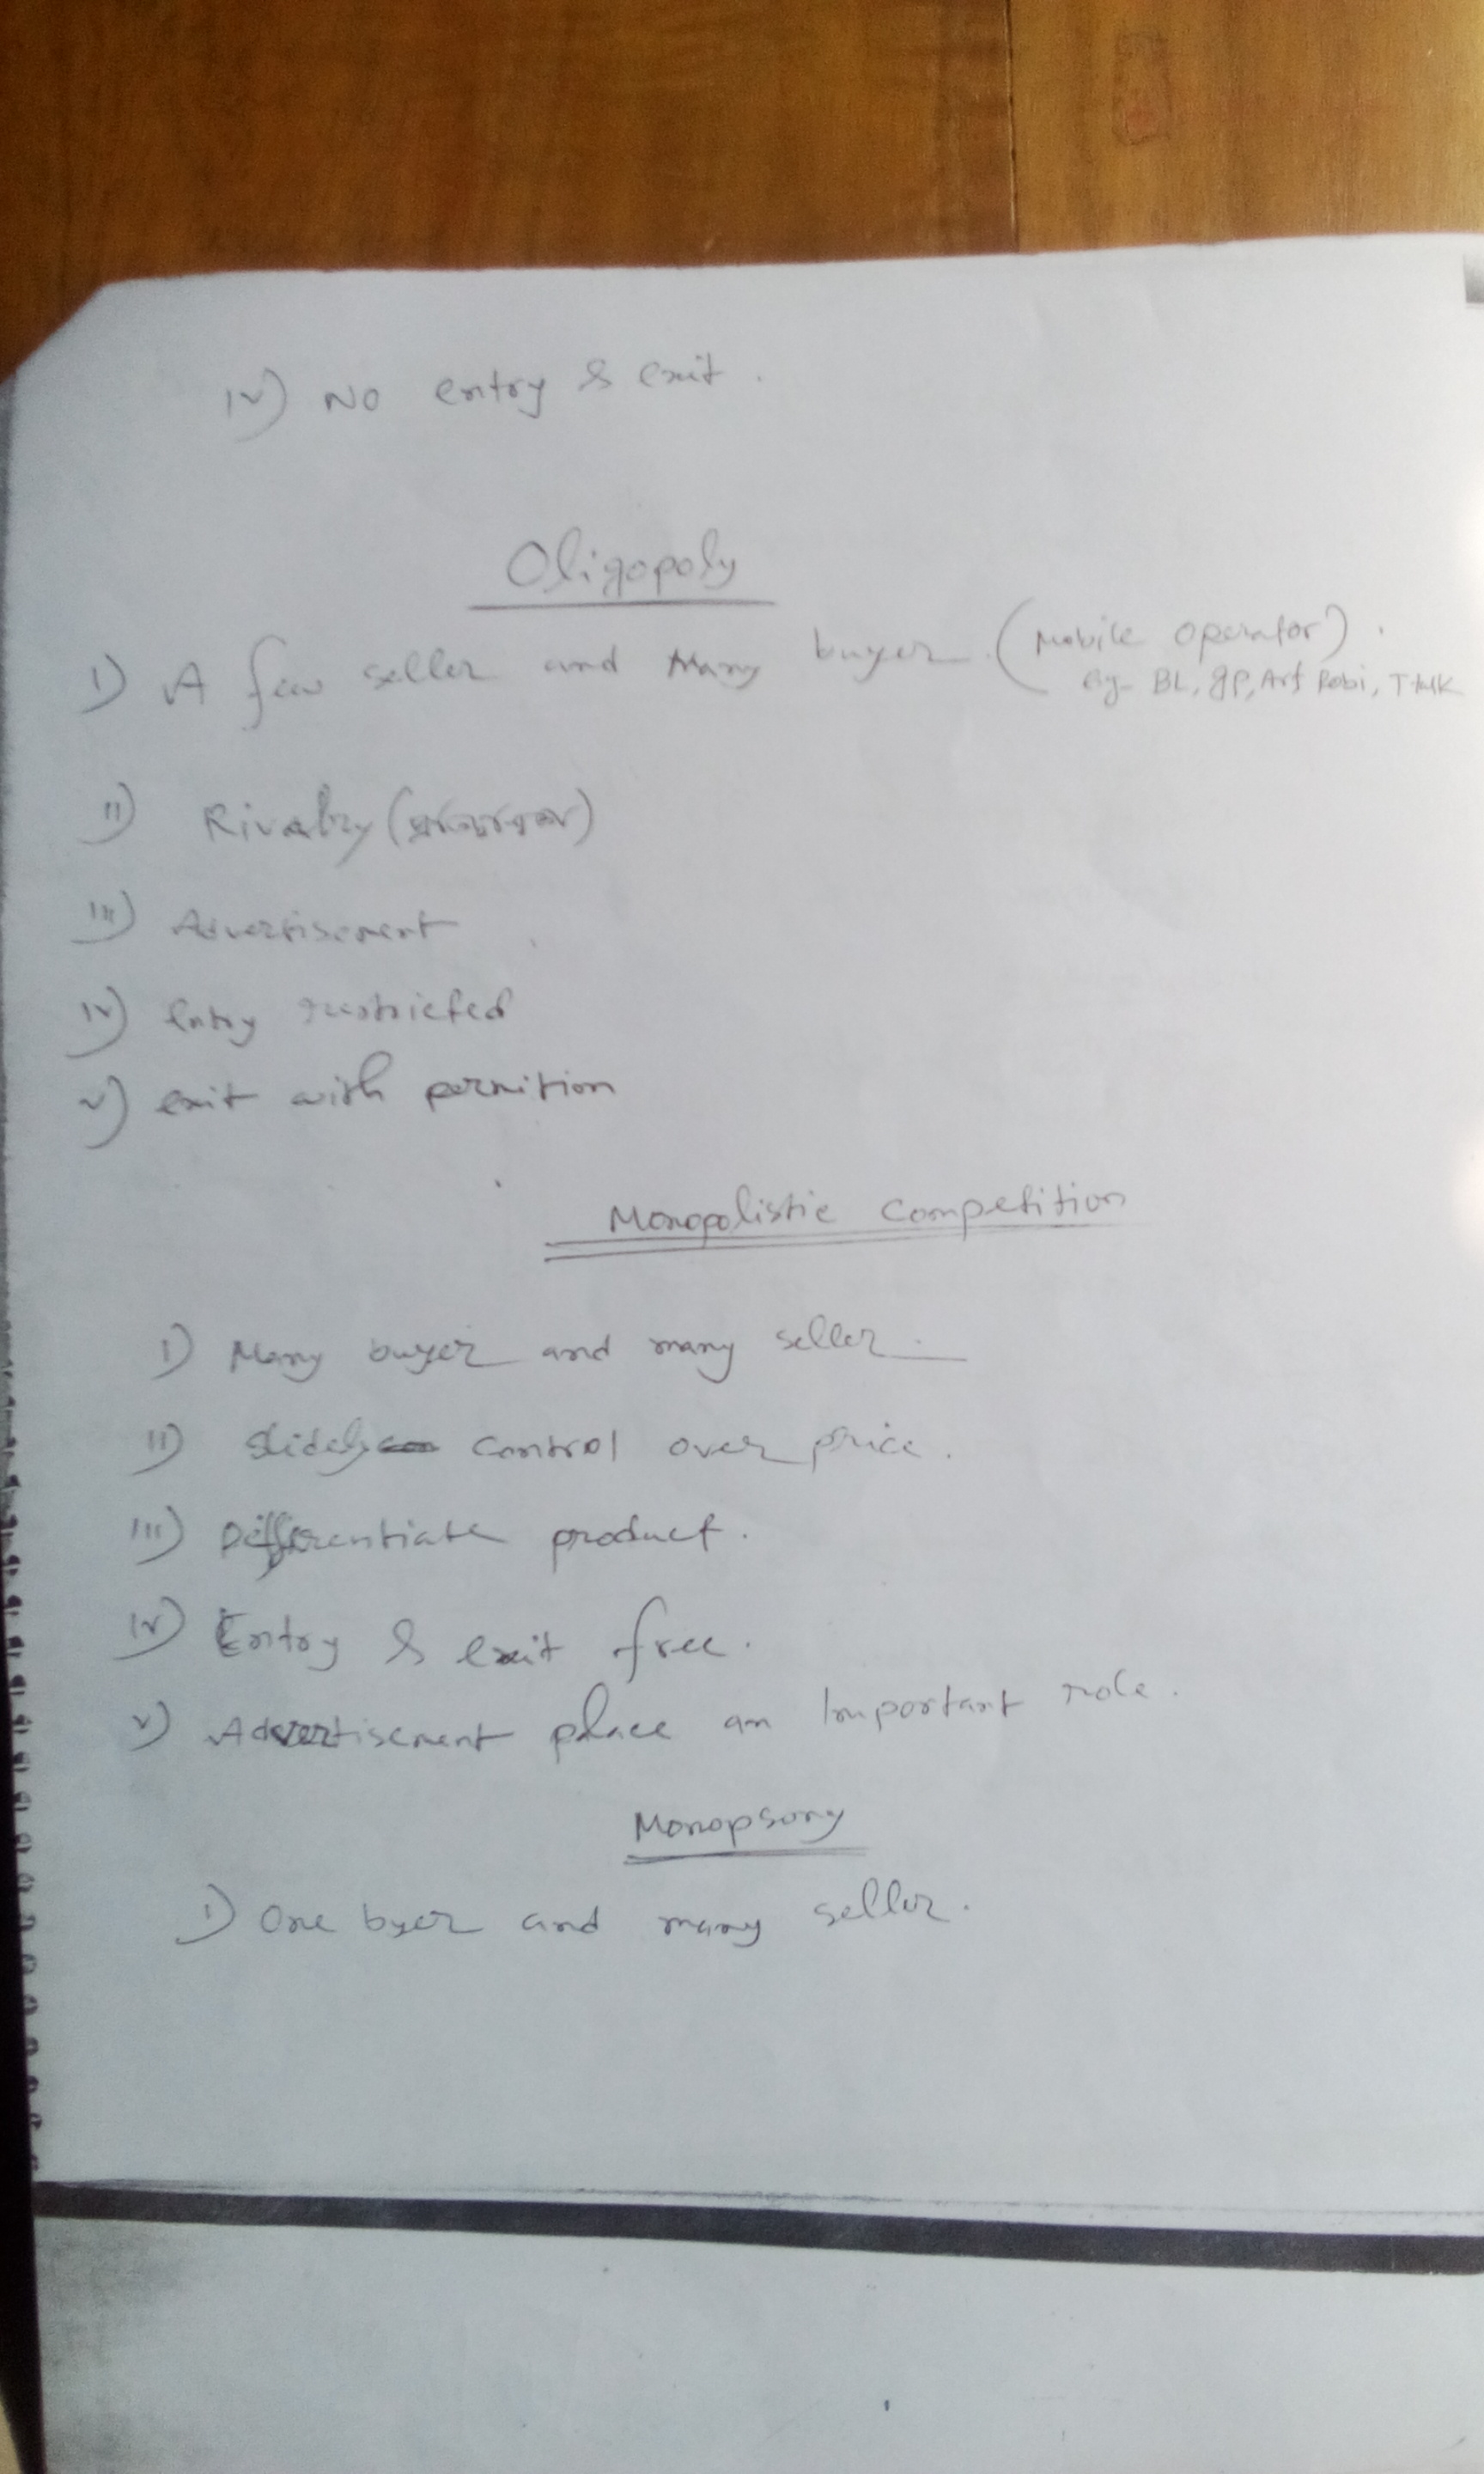 IV) No entry & exit.
Oligopoly
I) A few seller and Many buyer. (Mobile operator).
eg- BL, gp, Robi, T talk
II) Rivalry
III) Advertisement
IV) Entry restricted
V) exit with permition
Monopolistic Competition
I) Many buyer and many seller.
II) Slidely control over price.
III) Differentiate product.
IV) Entry & exit free.
V) Advertisement place an Important role.
Monopsony
I) One byer and many seller.